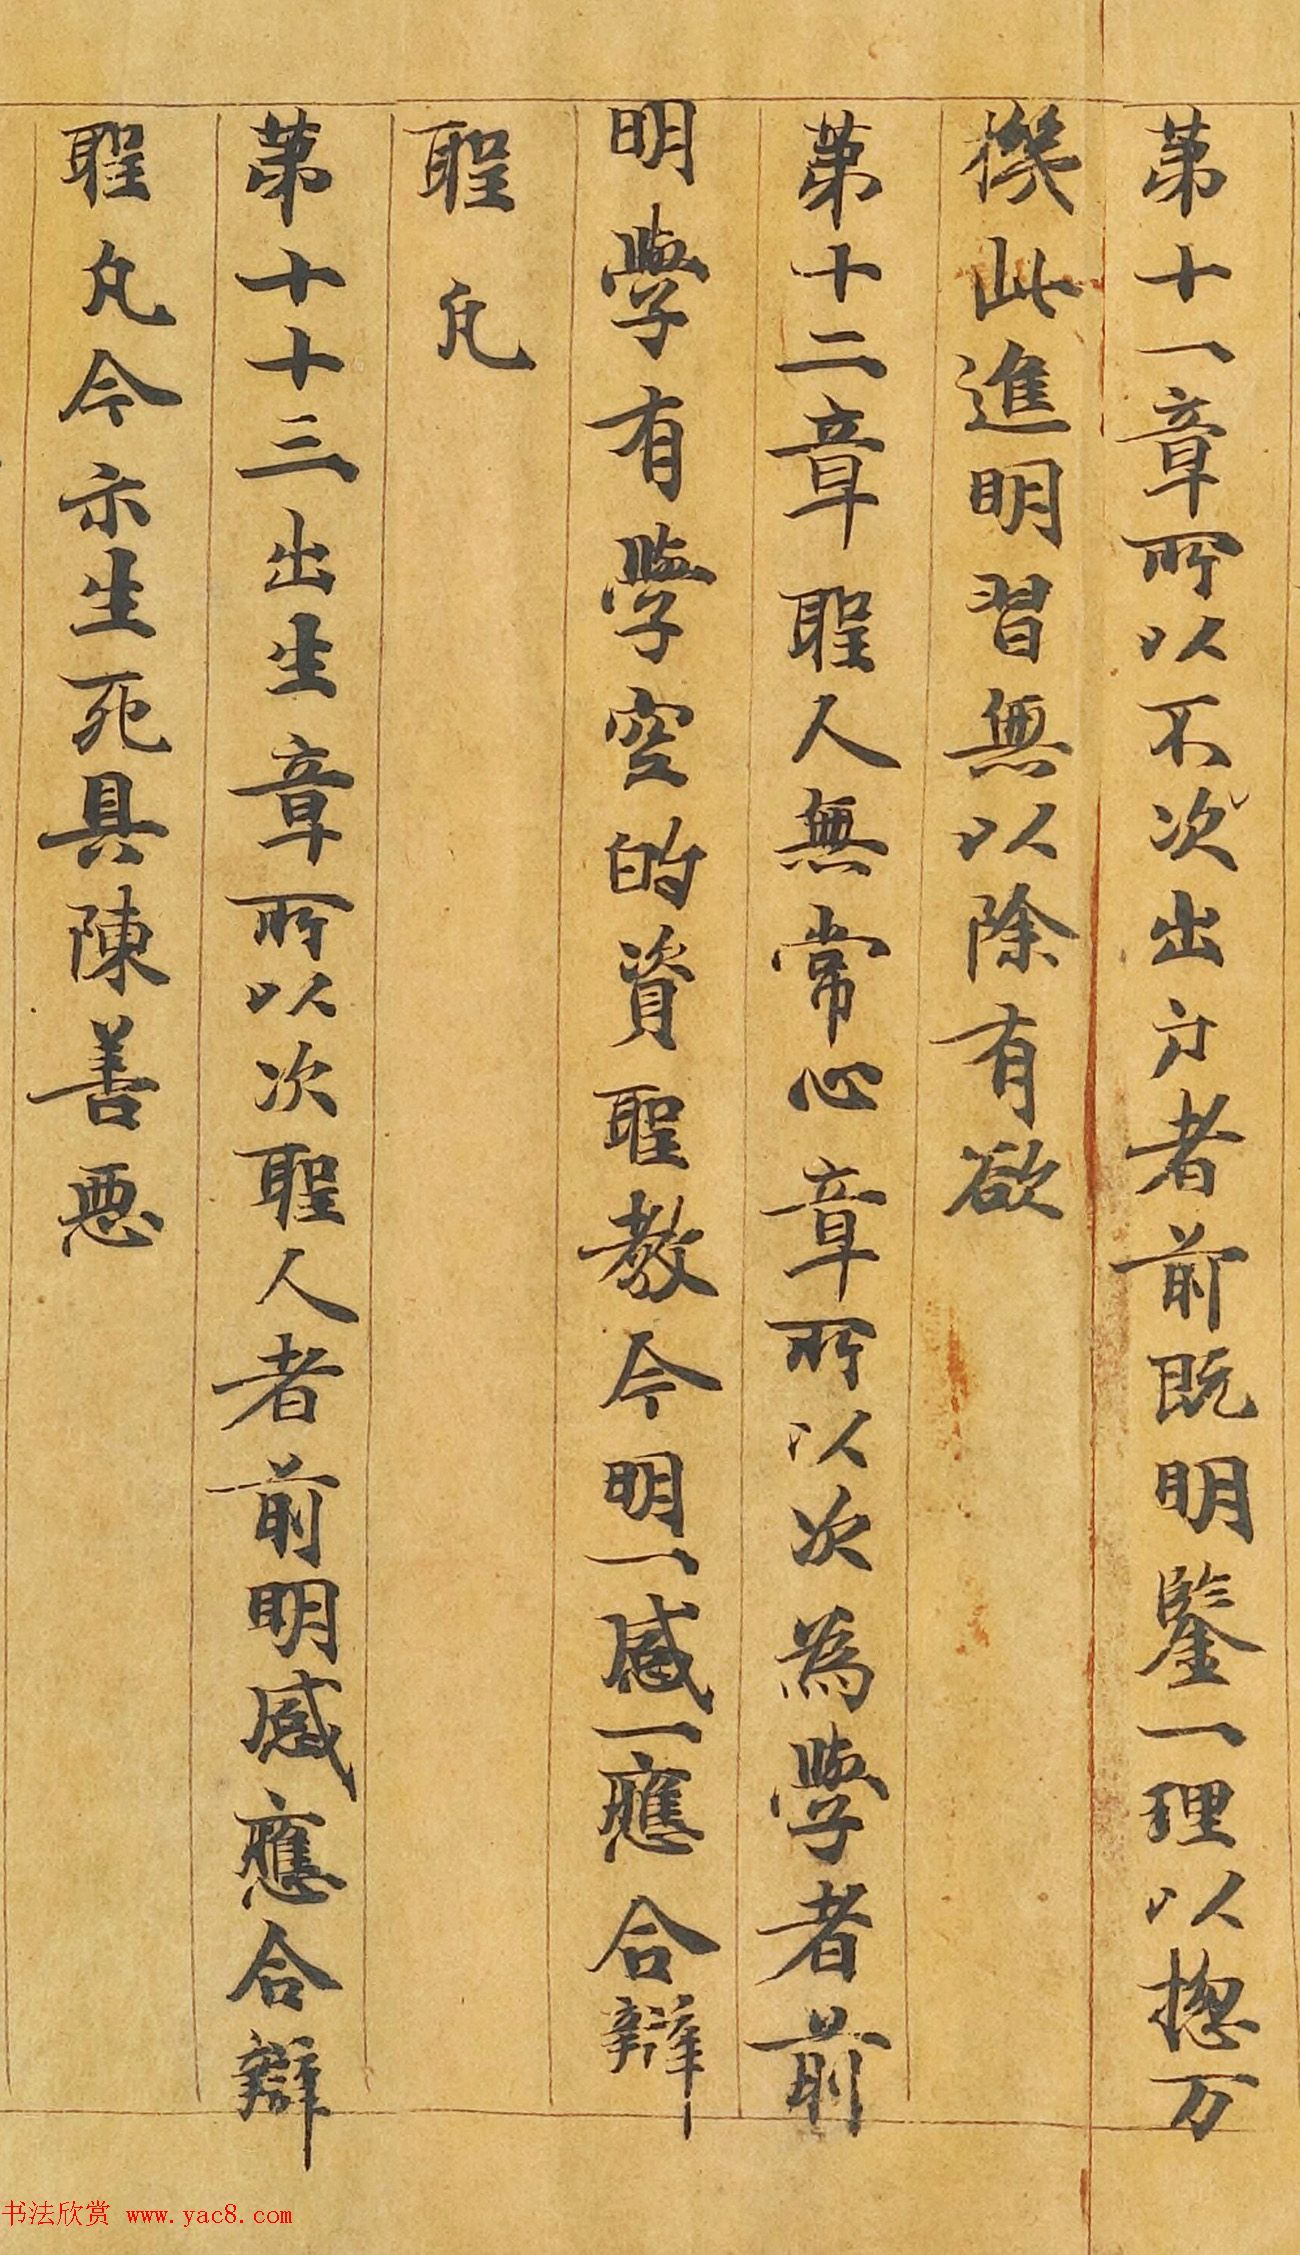 第十一章所以不次出方者前既明鑒一理以揔万
機此進明習無以除有欲
第十二章聖人無常心章所以次為學者前
明學有學空的資聖教今明一感一應合辯
聖凡
第十十三出生章所以次聖人者前明感應合辯
聖凡今示生死具陳善惡
书法欣赏 www.yac8.com